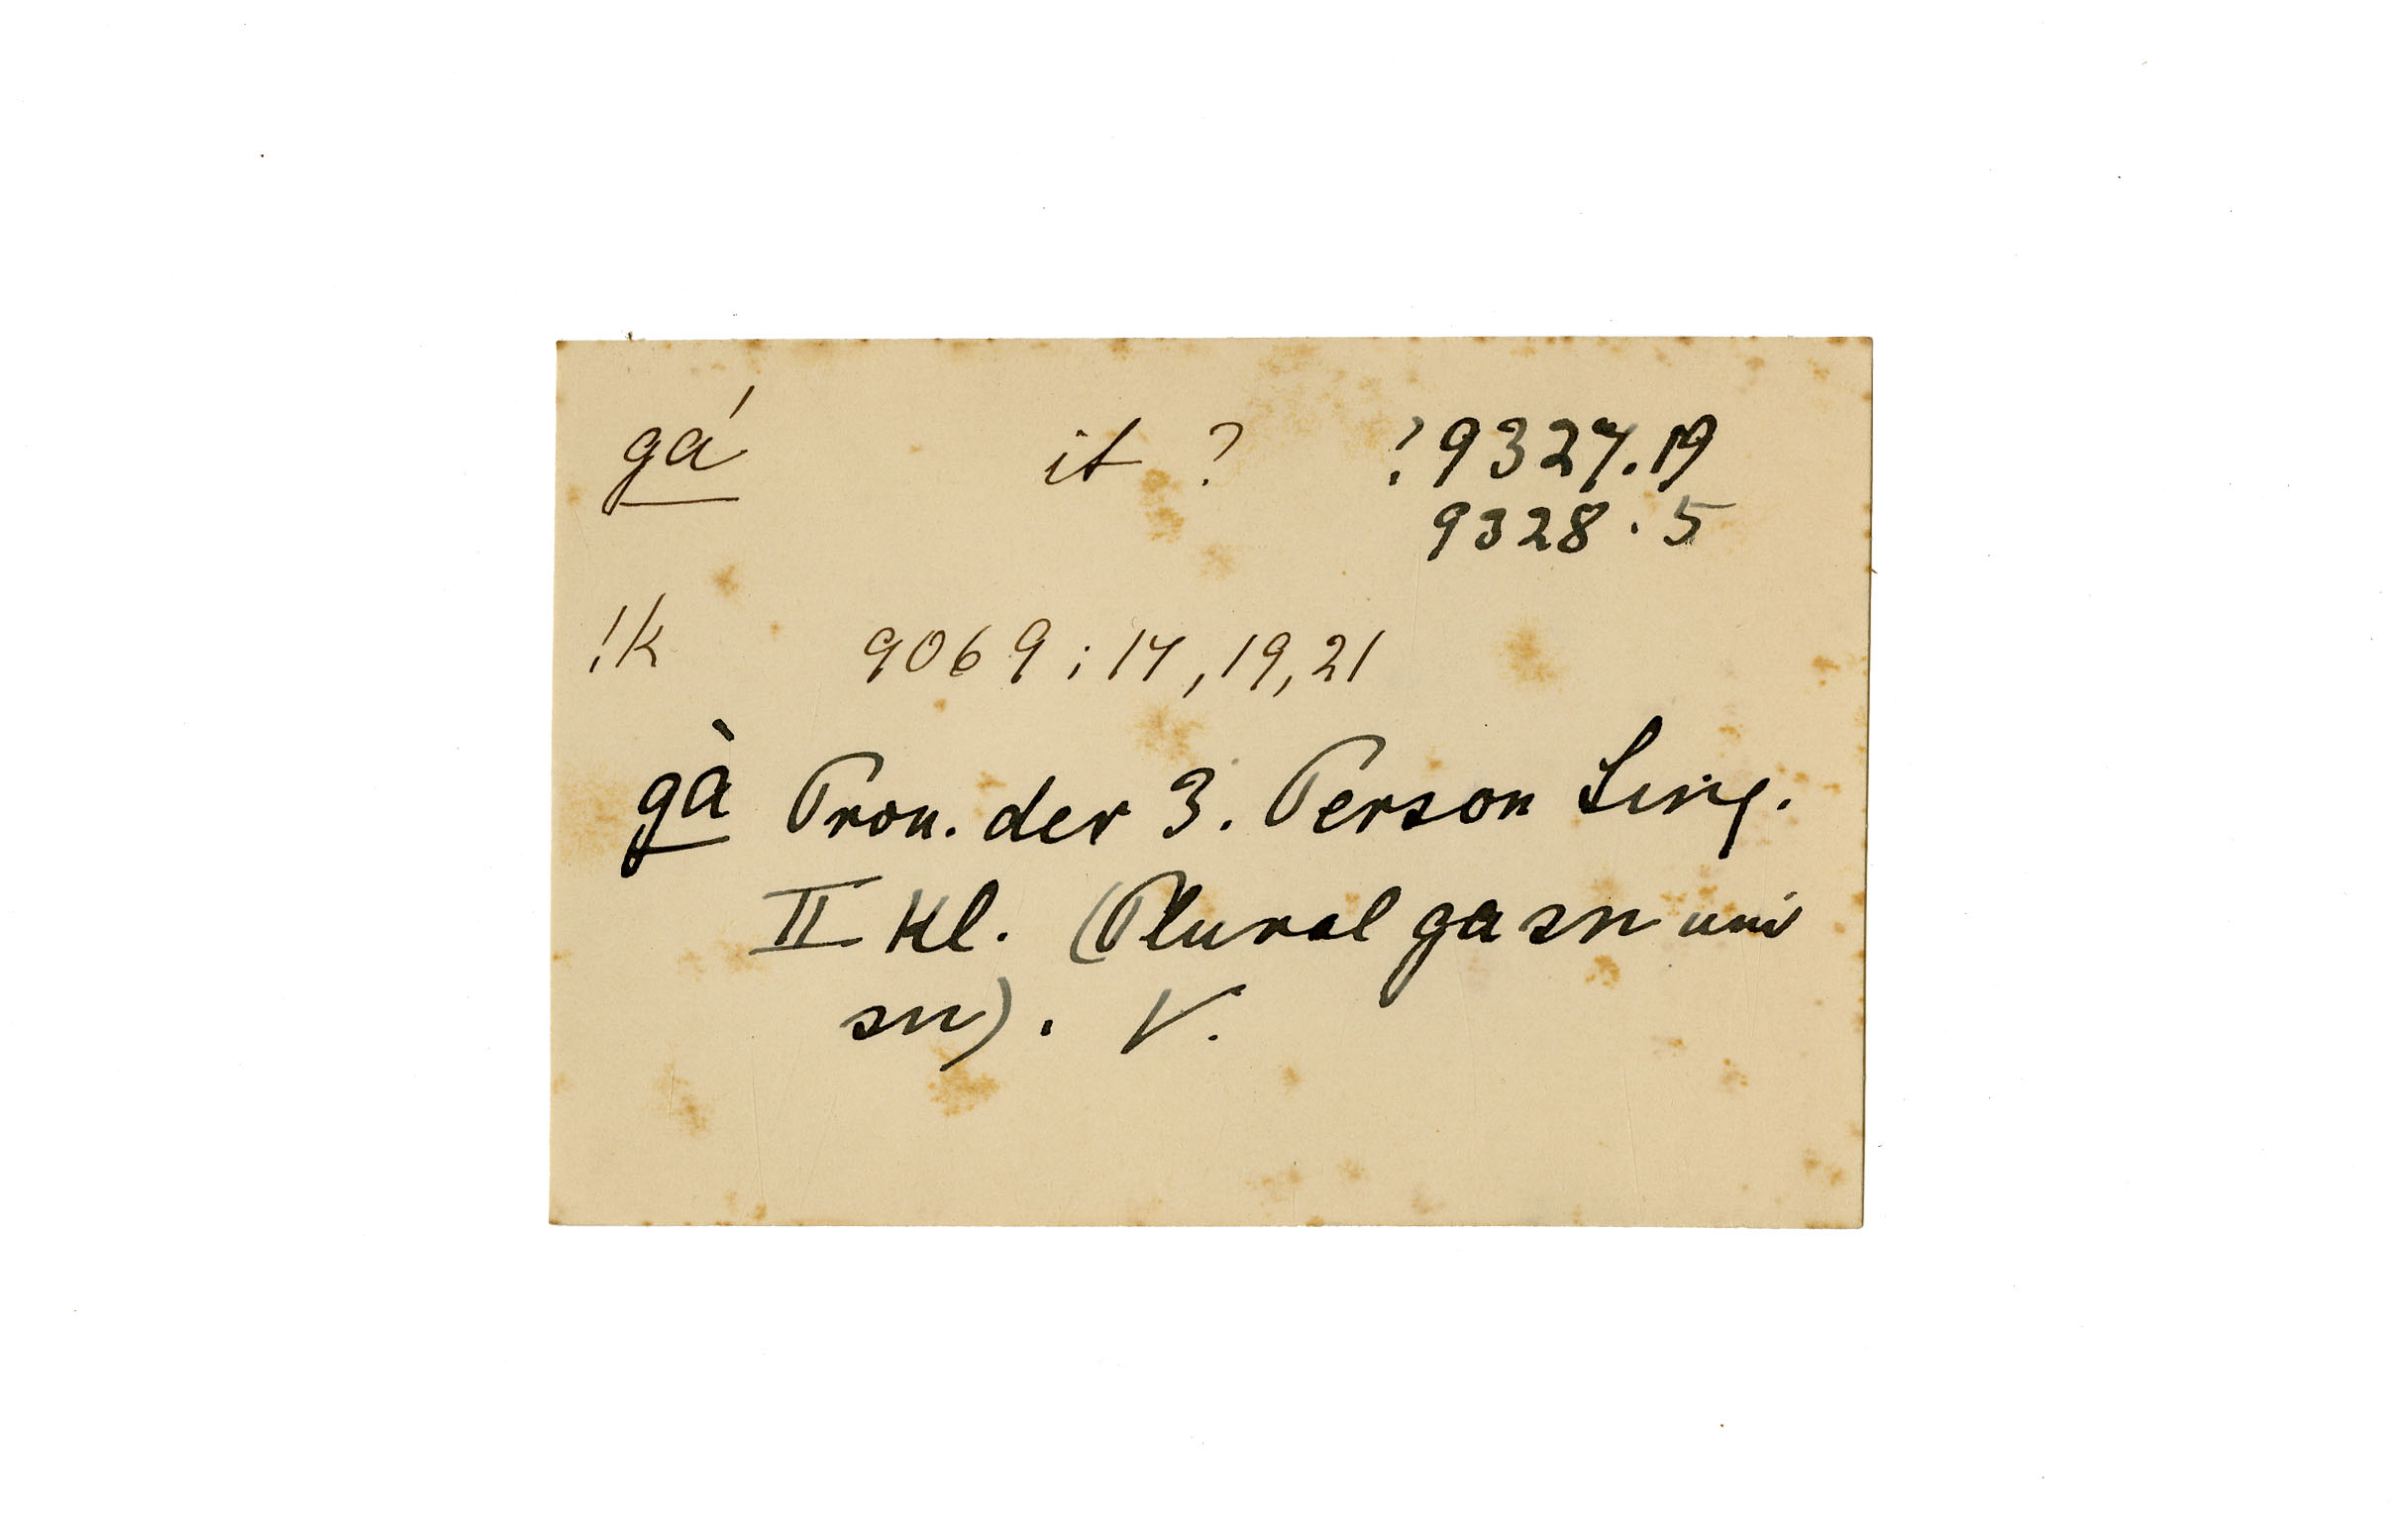 gá it ? ? 9327.19
9328.5
!k 9069; 17, 19, 21
gà Pron. der 3. Person Sing.
II Kl. (Plural gasn und
sn). V.